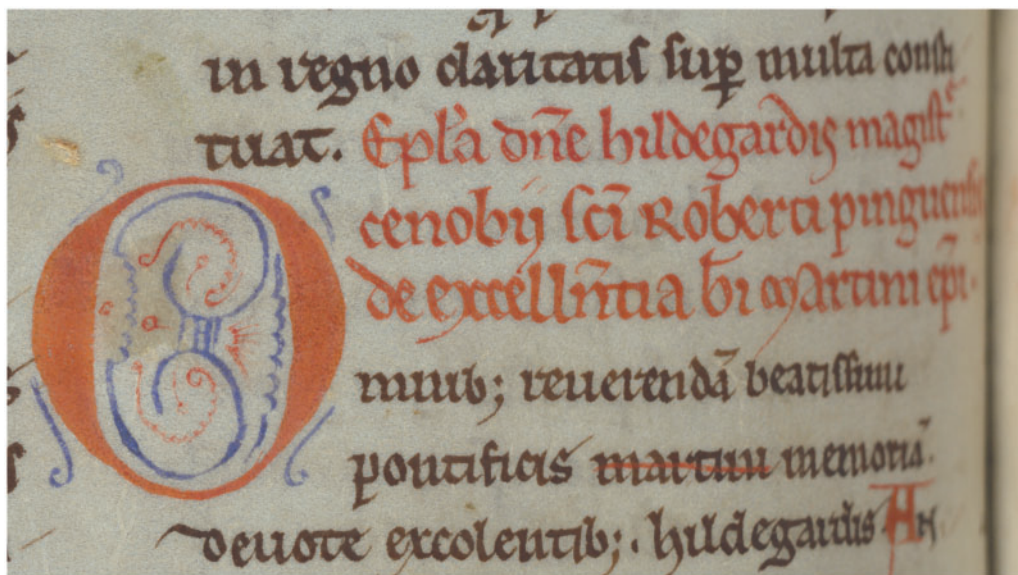 in regno claritatis sup̄ multa consti
tuat. Ep̄la dn̄e hildegardis magist̄e
cenobij sc̄i Roberti pinguensis
de excelln̄tia b̄i Martini ep̄i.
Omnib; reuerendā beatissimi
pontificis martini memoriā.
deuote excolentib;. hildegardis An